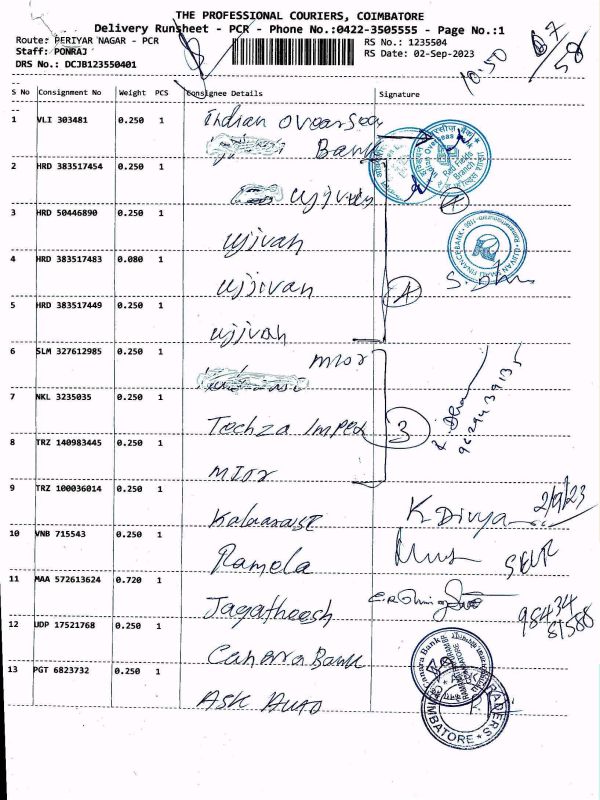 THE PROFESSIONAL COURIERS, COIMBATORE
Delivery Runsheet - PCR - Phone No.:0422-3505555 - Page No.:1
Route: PERIYAR NAGAR - PCR
RS No.: 1235504
Staff: PONRAJ
RS Date: 02-Sep-2023
DRS No.: DCJB123550401
10.50
S No Consignment No Weight PCS Consignee Details Signature
1 VLI 303481 0.250 1 Indian Overseas Bank
2 HRD 383517454 0.250 1 Ujjivan
3 HRD 50446890 0.250 1 Ujjivan
4 HRD 383517483 0.080 1 Ujjivan
5 HRD 383517449 0.250 1 Ujjivan
6 SLM 327612985 0.250 1
7 NKL 3235035 0.250 1 Techza Impex
3
9629439135
8 TRZ 140983445 0.250 1
9 TRZ 100036014 0.250 1 K. Divya 2/9/23
10 VNB 715543 0.250 1 Ramela SELF
11 MAA 572613624 0.720 1 Jagatheesh 98434 81588
12 UDP 17521768 0.250 1 Canara Bank
13 PGT 6823732 0.250 1 ASK Auto